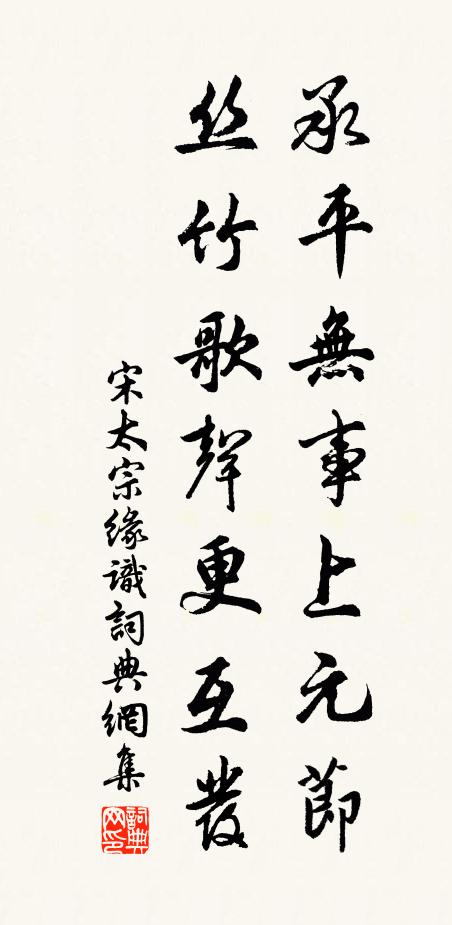 承平無事上元節
丝竹歌聲更互發
宋太宗緣識詞典網集
詞典网印